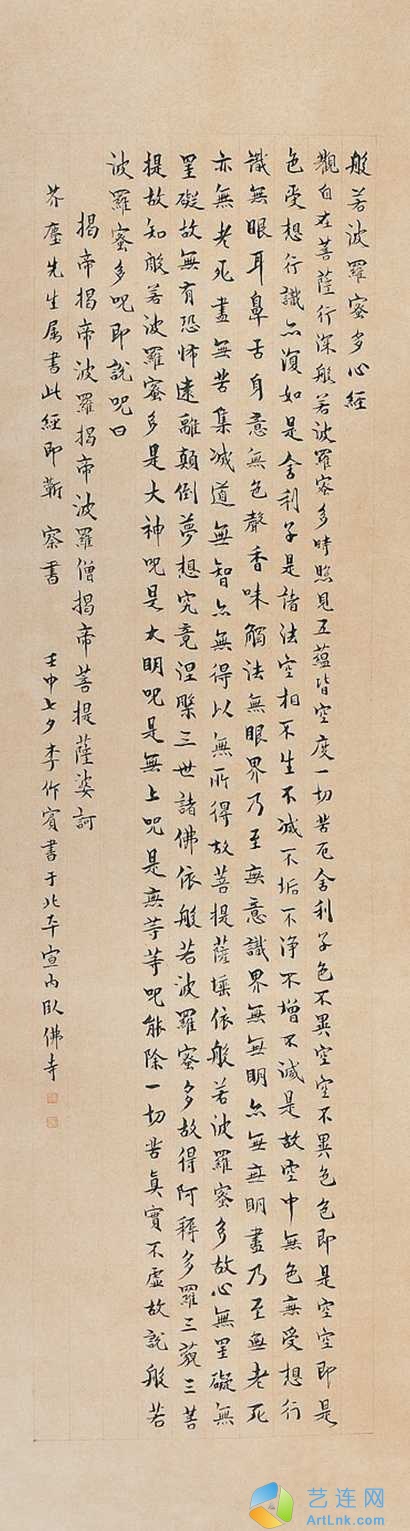 般若波羅蜜多心經
觀自在菩薩行深般若波羅蜜多時照見五蘊皆空度一切苦厄舍利子色不異空空不異色色即是空空即是
色受想行識亦復如是舍利子是諸法空相不生不滅不垢不淨不增不減是故空中無色無受想行
識無眼耳鼻舌身意無色聲香味觸法無眼界乃至無意識界無無明亦無無明盡乃至無老死
亦無老死盡無苦集滅道無智亦無得以無所得故菩提薩埵依般若波羅蜜多故心無罣礙無
罣礙故無有恐怖遠離顛倒夢想究竟涅槃三世諸佛依般若波羅蜜多故得阿耨多羅三藐三菩
提故知般若波羅蜜多是大神咒是大明咒是無上咒是無等等咒能除一切苦真實不虛故說般若
波羅蜜多咒即說咒曰
揭帝揭帝波羅揭帝波羅僧揭帝菩提薩婆訶
芥塵先生屬書此經即蘄 察書 壬申七夕李作賓書于北平宣內臥佛寺
艺连网
ArtLnk.com